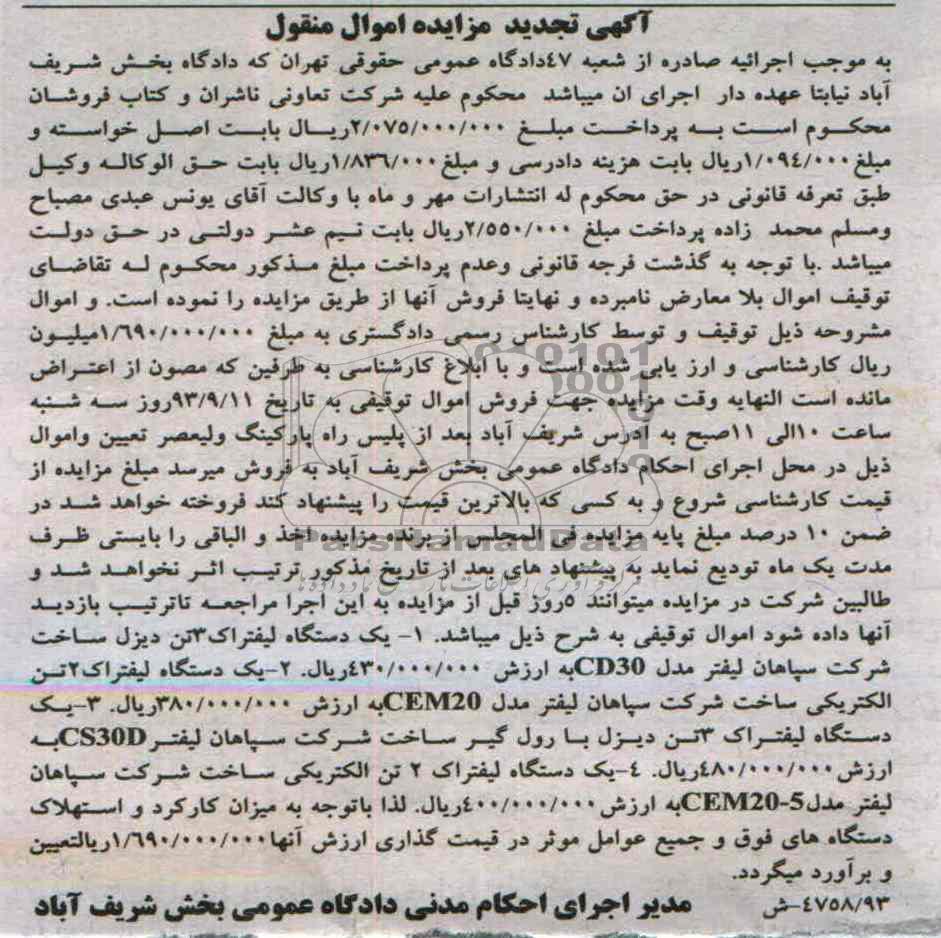 آگهی تجدید مزایده اموال منقول
به موجب اجرائیه صادره از شعبه ٤٧دادگاه عمومی حقوقی تهران که دادگاه بخش شریف
آباد نیابتا عهده دار اجرای ان میباشد محکوم علیه شرکت تعاونی ناشران و کتاب فروشان
محکوم است به پرداخت مبلغ ٢/٠٧٥/٠٠٠/٠٠٠ریال بابت اصل خواسته و
مبلغ١/٠٩٤/٠٠٠ریال بابت هزینه دادرسی و مبلغ١/٨٣٦/٠٠٠ریال بابت حق الوکاله وکیل
طبق تعرفه قانونی در حق محکوم له انتشارات مهر و ماه با وکالت آقای یونس عبدی مصباح
ومسلم محمد زاده پرداخت مبلغ ٢/٥٥٠/٠٠٠ریال بابت نیم عشر دولتی در حق دولت
میباشد .با توجه به گذشت فرجه قانونی وعدم پرداخت مبلغ مذکور محکوم له تقاضای
توقیف اموال بلا معارض نامبرده و نهایتا فروش آنها از طریق مزایده را نموده است. و اموال
مشروحه ذیل توقیف و توسط کارشناس رسمی دادگستری به مبلغ ١/٦٩٠/٠٠٠/٠٠٠میلیون
ریال کارشناسی و ارز یابی شده است و با ابلاغ کارشناسی به طرفین که مصون از اعتراض
مانده است النهایه وقت مزایده جهت فروش اموال توقیفی به تاریخ ٩٣/٩/١١روز سه شنبه
ساعت ١٠الی ١١صبح به آدرس شریف آباد بعد از پلیس راه پارکینگ ولیعصر تعیین واموال
ذیل در محل اجرای احکام دادگاه عمومی بخش شریف آباد به فروش میرسد مبلغ مزایده از
قیمت کارشناسی شروع و به کسی که بالاترین قیمت را پیشنهاد کند فروخته خواهد شد در
ضمن ١٠ درصد مبلغ پایه مزایده فی المجلس از برنده مزایده اخذ و الباقی را بایستی ظرف
مدت یک ماه تودیع نماید به پیشنهاد های بعد از تاریخ مذکور ترتیب اثر نخواهد شد و
طالبین شرکت در مزایده میتوانند ٥روز قبل از مزایده به این اجرا مراجعه تاترتیب بازدید
آنها داده شود اموال توقیفی به شرح ذیل میباشد. ١- یک دستگاه لیفتراک٣تن دیزل ساخت
شرکت سپاهان لیفتر مدل CD30به ارزش ٤٣٠/٠٠٠/٠٠٠ریال. ٢-یک دستگاه لیفتراک٢تن
الکتریکی ساخت شرکت سپاهان لیفتر مدل CEM20به ارزش ٣٨٠/٠٠٠/٠٠٠ریال. ٣-یک
دستگاه لیفتراک ٣تن دیزل با رول گیر ساخت شرکت سپاهان لیفترCS30Dبه
ارزش ٤٨٠/٠٠٠/٠٠٠ریال. ٤-یک دستگاه لیفتراک ٢ تن الکتریکی ساخت شرکت سپاهان
لیفتر مدلCEM20-5به ارزش ٤٠٠/٠٠٠/٠٠٠ریال. لذا باتوجه به میزان کارکرد و استهلاک
دستگاه های فوق و جمیع عوامل موثر در قیمت گذاری ارزش آنها١/٦٩٠/٠٠٠/٠٠٠ریالتعیین
و برآورد میگردد.
٤٧٥٨/٩٣-ش مدیر اجرای احکام مدنی دادگاه عمومی بخش شریف آباد
ParsNamadData